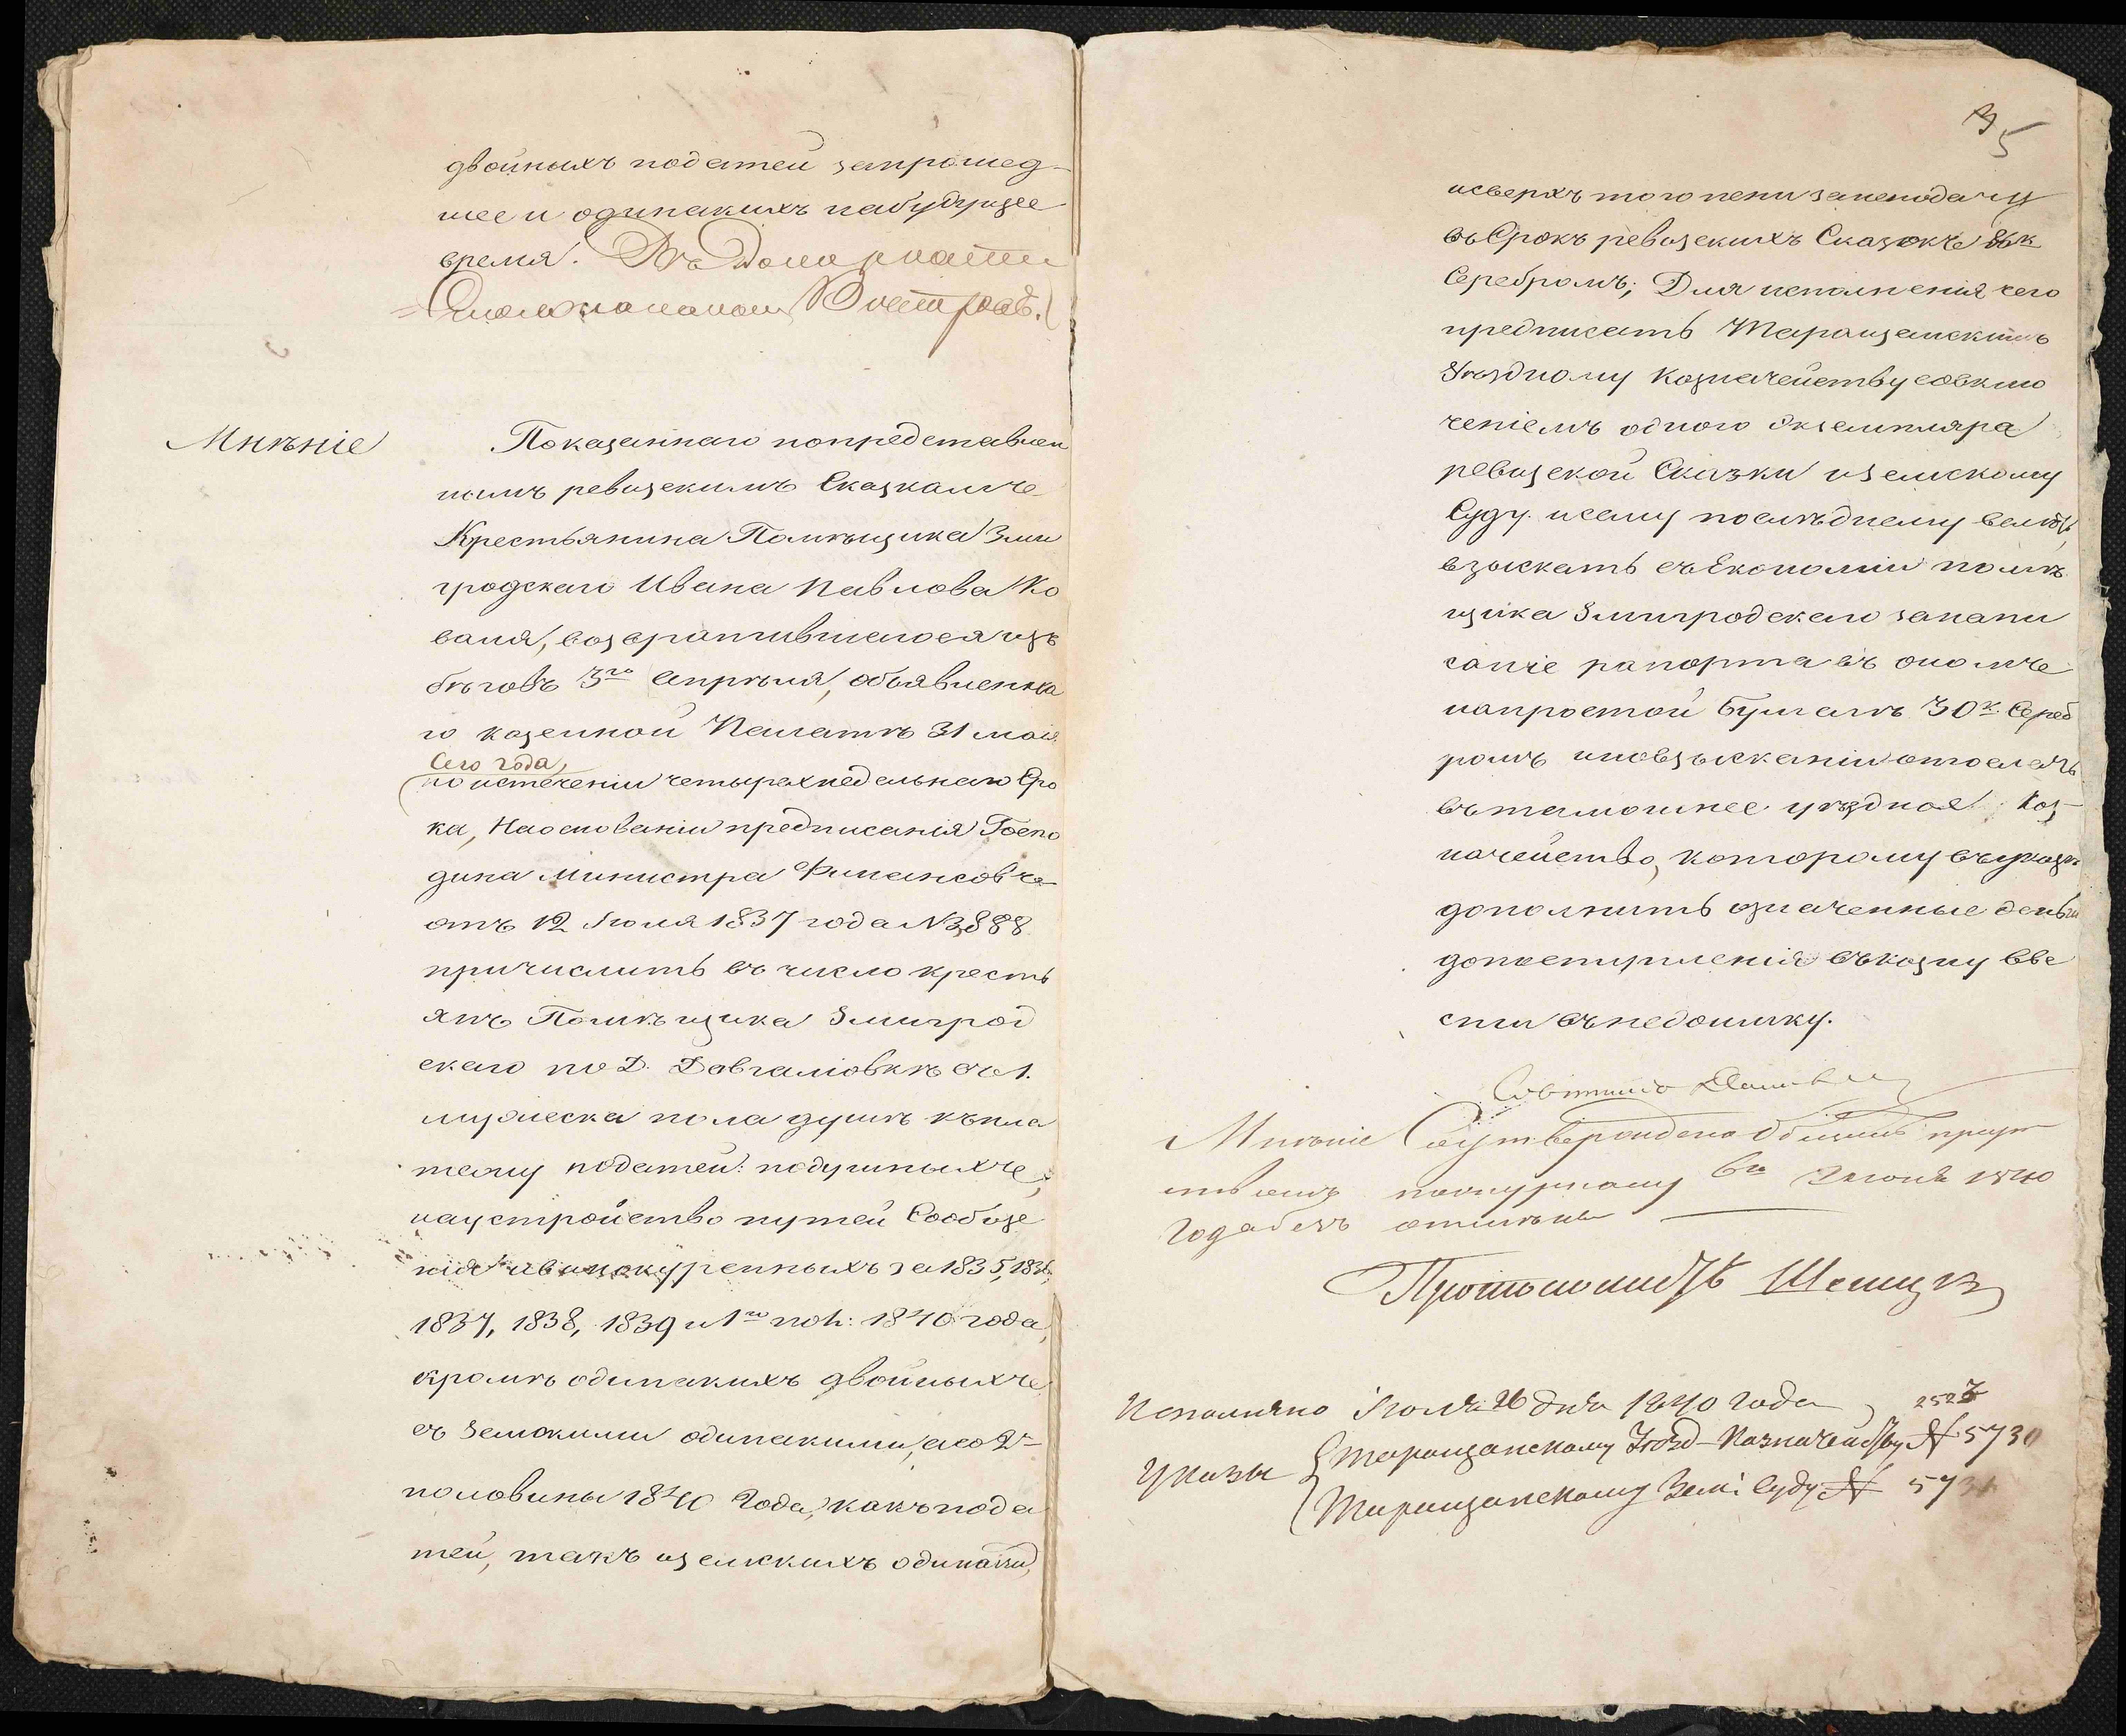 двойныхъ податей запрошед-
шее и одинакихъ набудущее
время.
Мнѣніе
Показаннаго попредставлен
нымъ ревизскимъ Сказкамъ
Крестьянина Помѣщика Зми
гродскаго Ивана Павлова Ко
валя, возвратившагося изъ
бѣговъ 3го апрѣля, объявленна
го казенной Палатѣ 31 мая
Сего года,
по истеченіи четырехнедельнаго Сро
ка, На основаніи предписанія Госпо
дина Министра Финансовъ
отъ 12 Іюля 1837 года № 3,888
причислить въ число кресть
янъ Помѣщика Змигрод
скаго по Д. Довгаліовкѣ 1.
мужеска пола душѣ къпла
тежу податей: подушныхъ,
наустройство путей Сообще
нія ивинокуренныхъ за 1835, 1836,
1837, 1838, 1839 и 1ю пол: 1840 года,
кромѣ одинакихъ двойныхъ
съ земскими одинакими, а со 2й
половины 1840 Года, какъ пода
тей, такъ иземскихъ одинаки,
35
исверхъ того пени занеподачу
въ Срокъ ревизскихъ Сказокъ 86 к
Серебромъ; Для исполненія чего
предписать Таращанскимъ
Уѣздному Казначейству совклю
ченіемъ одного Экземпляра
ревизской Сказки иземскому
Суду. исему послѣднему велѣть,
взыскать съ Економіи помѣ
щика Змигродскаго занапи
саніе рапорта въ ономъ
напростой бумагѣ 30 к. Сереб
ромъ иповзысканіи отослать
въ тамошнее уѣздное Каз-
начейство, которому
дополнить означенные деньги
допоступленія въказну вве
сти въ недоимку.
Мнѣніе утверждено Общимъ прису
ствіемъ по журналу 6го Іюня 1840
Года безъ отмѣны
Исполнено Іюля 26 дня 1840 Года
2523
Указы
Таращанскому Уѣзд-Казначейству № 5730
Таращанскому Зем: Суду № 5731